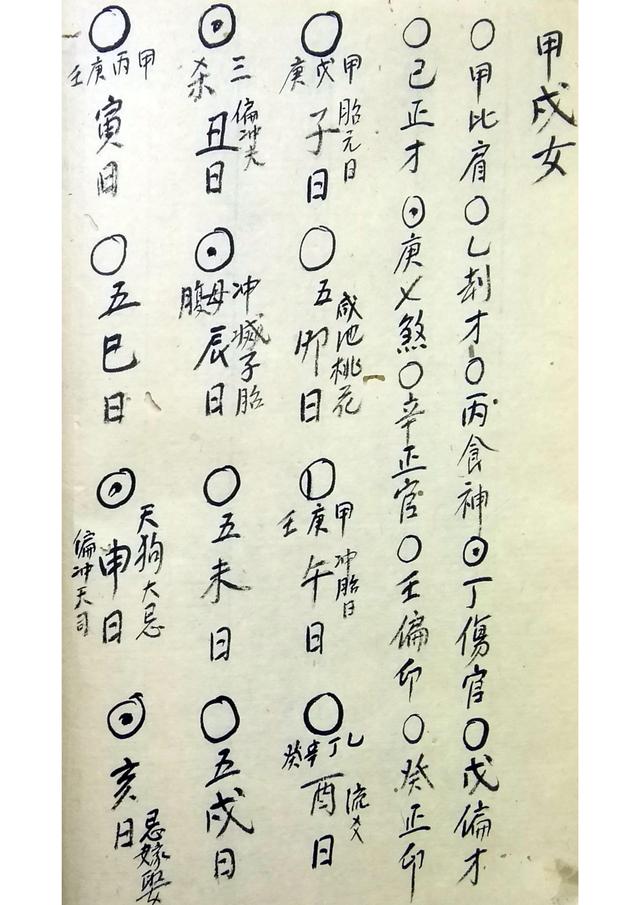 甲戌女
○甲比肩○乚刦才○丙食神⊙丁傷官○戊偏才
○己正才⊙庚乂煞○辛正官○壬偏印○癸正印
○甲戊庚子日胎元日
○五卯日咸池桃花
○甲庚壬午日冲胎日
○乚丁辛癸酉日流乂
⊙三杀丑日偏冲夫
⊙母腹辰日冲滅子胎
○五未日
○五戌日
○甲丙庚壬寅日
○五巳日
⊙申日天狗大忌偏冲天司
⊙亥日忌嫁娶